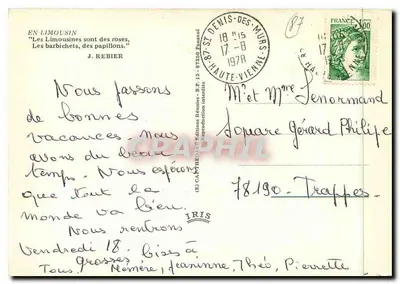 EN LIMOUSIN
"Les Limousines sont des roses,
Les barbichets, des papillons."
J. REBIER
Nous passons
de bonnes
vacances. Nous
avons du beau
temps. Nous espérons
que tout le
monde va bien.
Nous rentrons
Vendredi 18. Bises à
grosses
Tous. Mémère, Jeaninne, Théo, Pierrette
IRIS
87 ST DENIS-DES-MURS
18 H 15
17-8
1978
HAUTE-VIENNE
87
FRANCE
1,00
Mr et Mme Lenormand
Square Gérard Philipe
78190 - Trappes
CARTPOSTAL